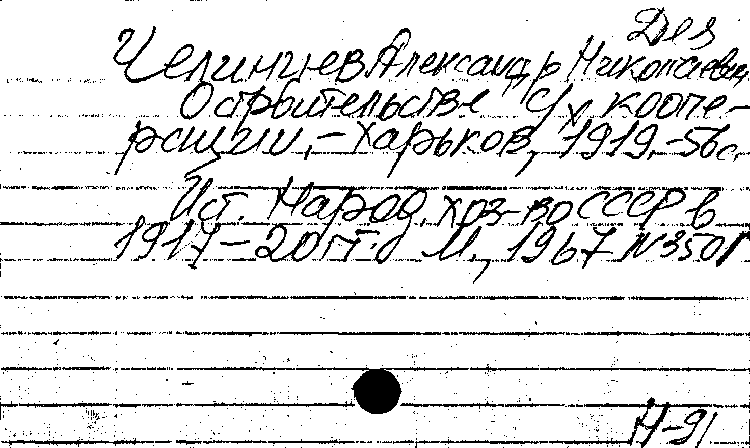 Дея
Челинцев Александр Николаевич
О строительстве с/х коопе-
рации. - Харьков, 1919. - 56 с.
Ист. Народ. хоз-во СССР в
1917-20 гг. М., 1967 N 3501
Н-91